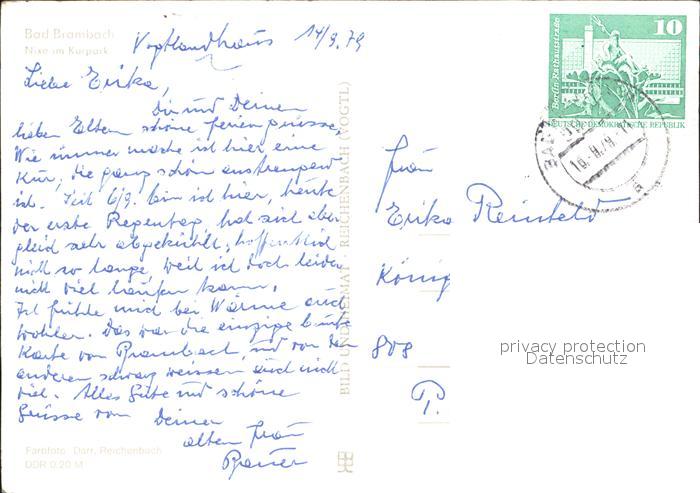 Bad Brambach
Nixe im Kurpark
Vogtlandhaus 14/9.79
Liebe Erika,
Dir und Deinen
lieben Eltern schöne Feriengrüsse,
Wie immer mache ich hier eine
Kur, die ganz schön anstrengend
ist. Seit 6/9. bin ich hier, heute
der erste Regentag, hat sich aber
gleich sehr abgekühlt, hoffentlich
nicht so lange, weil ich doch leider
nicht viel laufen kann.
Ich fühle mich bei Wärme auch
wohler. Das war die einzige bunte
Karte von Brambach, und von den
anderen schwarz weissen auch nicht
viel. Alles Gute und schöne
Grüsse von Deiner
alten Frau
Farbfoto: Darr, Reichenbach
DDR 0,20 M
BILD UND HEIMAT · REICHENBACH (VOGTL)
10
Berlin Rathausstraße
DEUTSCHE DEMOKRATISCHE REPUBLIK
Frau
Erika
König
808
P.
privacy protection
Datenschutz